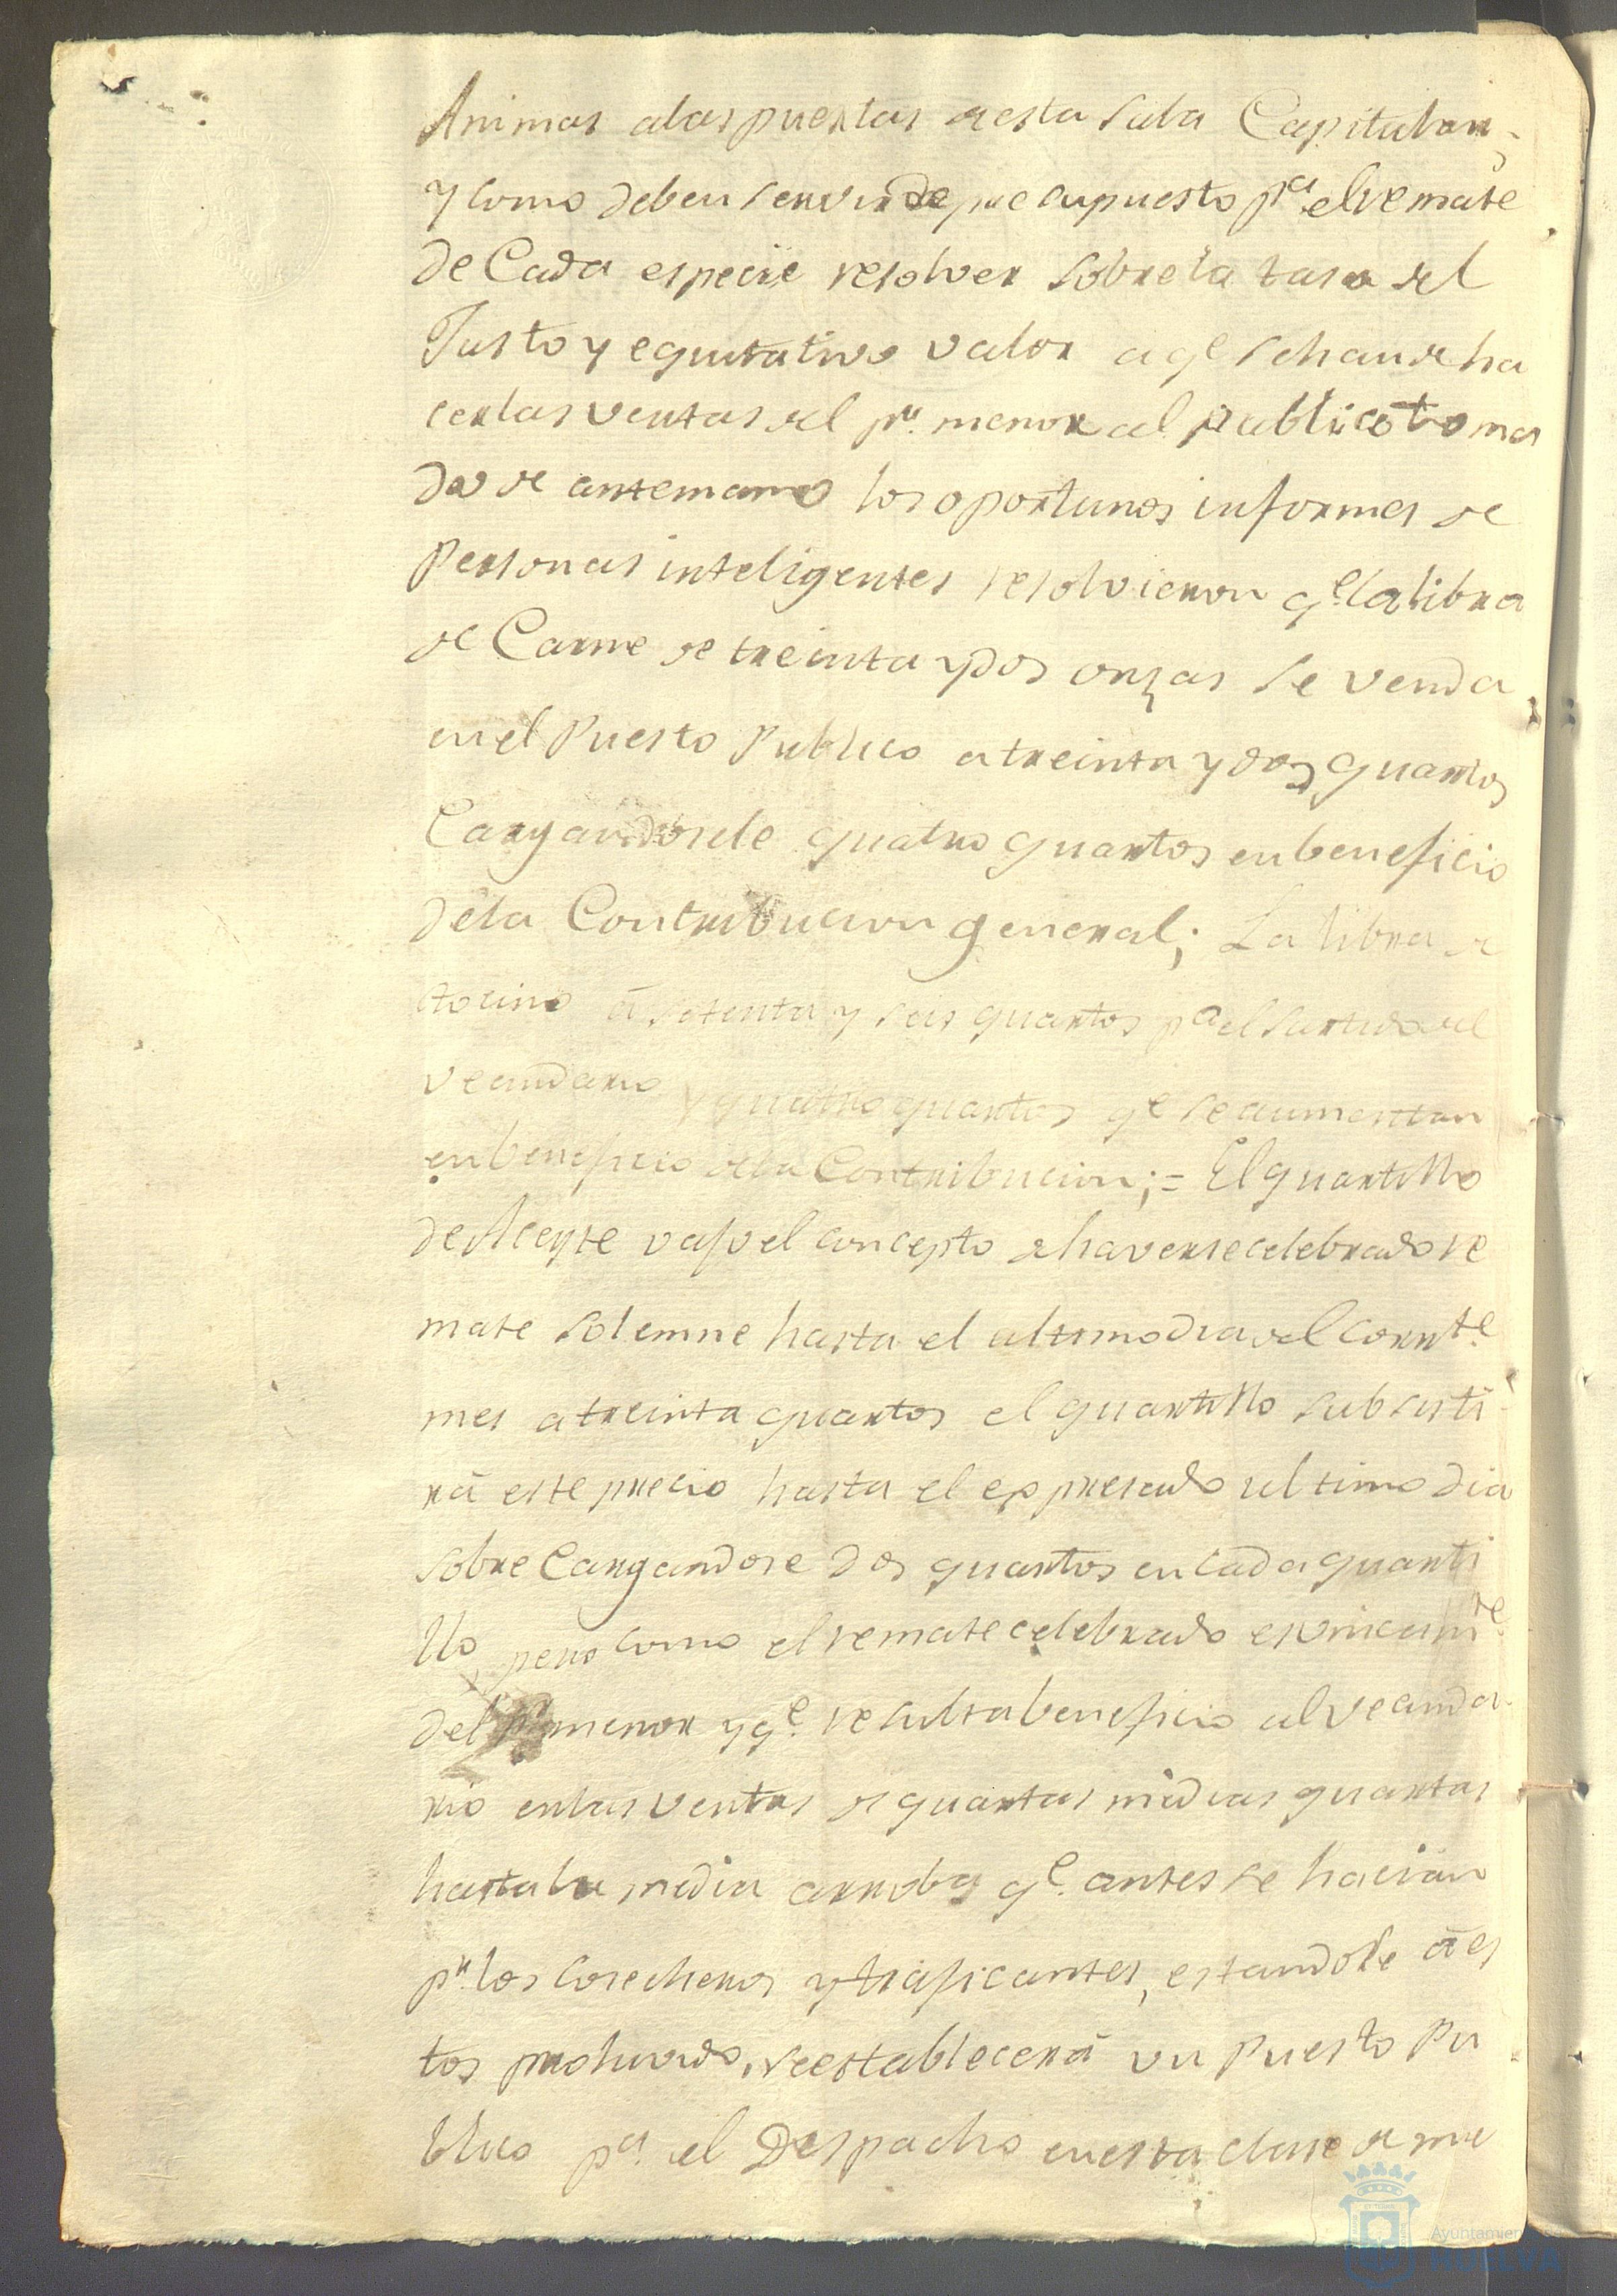 Animas alas puertas de esta Sala Capitular;
y como deben servir de presupuesto pa. el remate
de Cada especie resolver sobre la tasa del
Justo y equitativo valor a qe se han de ha
cer las ventas del pr. menor al publico toma
do de antemano los oportunos informes de
Personas inteligentes resolvieron qe. la libra
de Carne de treinta y dos onzas se venda
en el Puesto Publico a treinta y dos quartos
Cargandosele quatro quartos en beneficio
de la Contribucion general; La libra de
tocino á setenta y seis quartos pa el surtido del
vecindario y quatro quartos qe se aumentan
en beneficio de la Contribucion; = El quartillo
de Aceyte vajo el concepto de haverse celebrado re
mate solemne hasta el ultimo dia del corrte.
mes a treinta quartos el quartillo subsisti
rá este precio hasta el expresado ultimo dia
sobre Cargandose dos quartos en cada quarti
llo, pero como el remate celebrado es unicamte.
del Pr menor y qe. resulta beneficio al vecinda
rio en las ventas de quartas medias quartas
hasta la media arroba qe. antes se hacian
pr. los Cosecheros y traficantes, estandole á es
tos prohivido, se establecerá un Puesto Pu
blico pa. el Despacho en esta clase de me
Ayuntamiento de
HUELVA